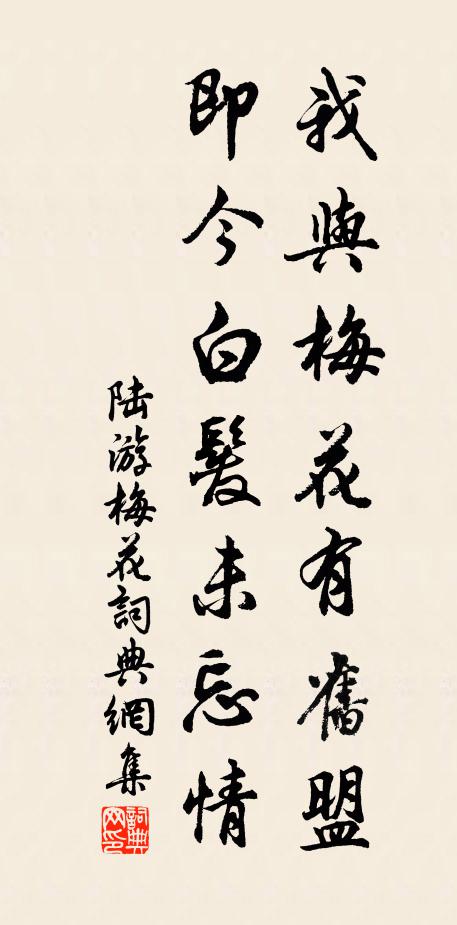 我與梅花有舊盟
即今白髮未忘情
陆游梅花詞典網集
詞典网印